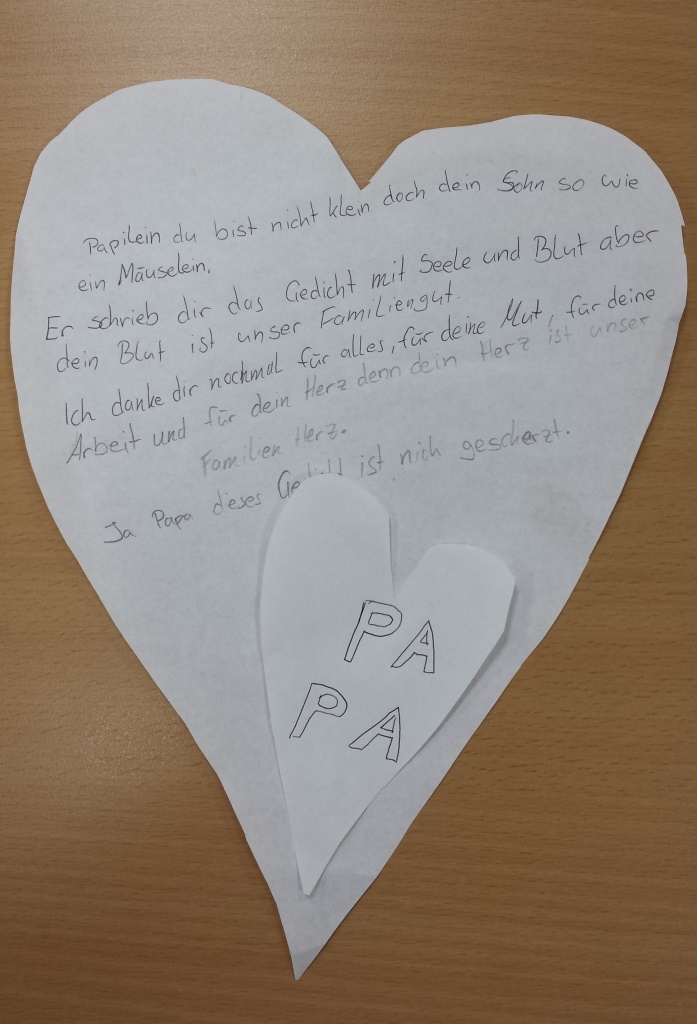 Papilein du bist nicht klein doch dein Sohn so wie
ein Mäuselein.
Er schrieb dir das Gedicht mit Seele und Blut aber
dein Blut ist unser Familiengut.
Ich danke dir nochmal für alles, für deine Mut, für deine
Arbeit und für dein Herz denn dein Herz ist unser
Familien Herz.
Ja Papa dieses Gedicht ist nich gescherzt.
PA
PA